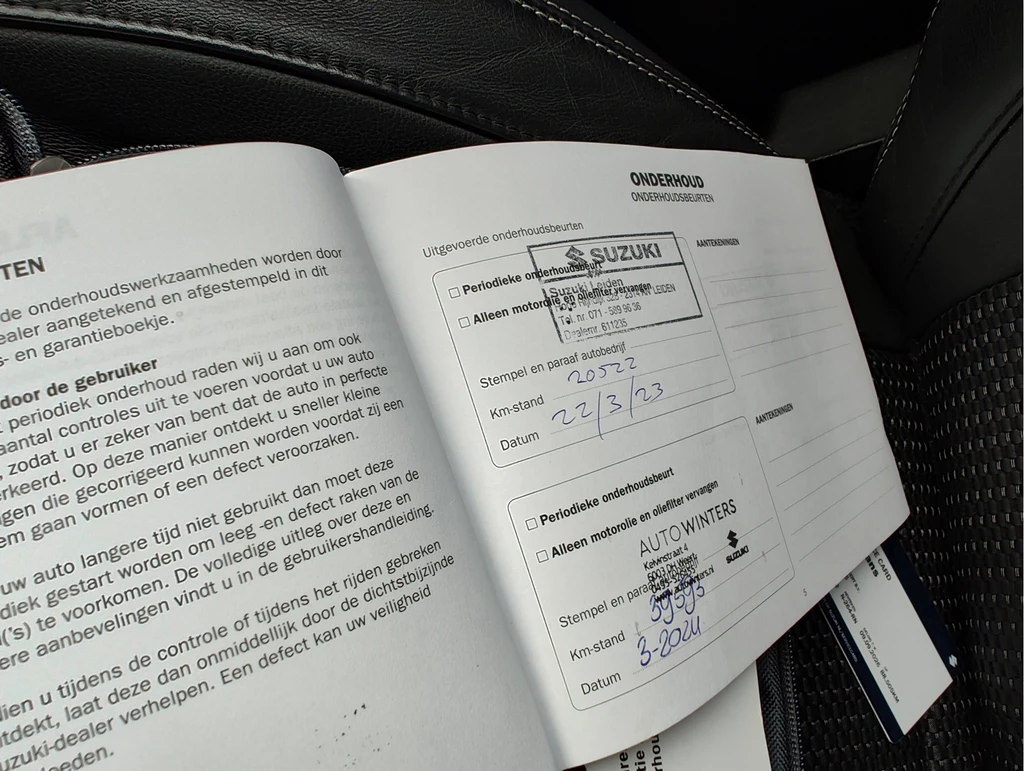 TEN
de onderhoudswerkzaamheden worden door
ealer aangetekend en afgestempeld in dit
s- en garantieboekje.
door de gebruiker
t periodiek onderhoud raden wij u aan om ook
aantal controles uit te voeren voordat u uw auto
, zodat u er zeker van bent dat de auto in perfecte
rkeerd. Op deze manier ontdekt u sneller kleine
gen die gecorrigeerd kunnen worden voordat zij een
em gaan vormen of een defect veroorzaken.
uw auto langere tijd niet gebruikt dan moet deze
diek gestart worden om leeg -en defect raken van de
l('s) te voorkomen. De volledige uitleg over deze en
ere aanbevelingen vindt u in de gebruikershandleiding.
dien u tijdens de controle of tijdens het rijden gebreken
ntdekt, laat deze dan onmiddellijk door de dichtstbijzijnde
uzuki-dealer verhelpen. Een defect kan uw veiligheid
loeden.
ONDERHOUD
ONDERHOUDSBEURTEN
Uitgevoerde onderhoudsbeurten
SUZUKI
Periodieke onderhoudsbeurt
Suzuki Leiden
Alleen motorolie en oliefilter vervangen
Tel. nr. 071 - 589 96 36
Dealernr. 611235
Stempel en paraaf autobedrijf
Km-stand 20522
Datum 22/3/23
AANTEKENINGEN
Periodieke onderhoudsbeurt
Alleen motorolie en oliefilter vervangen
AUTO WINTERS
Kelvinstraat 4
SUZUKI
www.autowinters.nl
Stempel en paraaf
Km-stand 39593
Datum 3-2024
AANTEKENINGEN
5
CARD